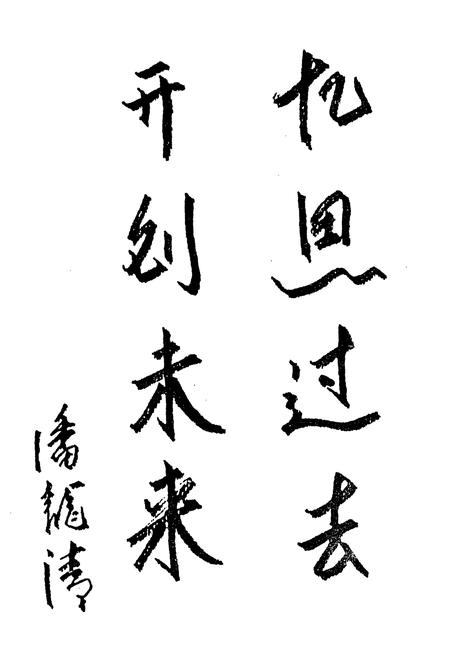 忆思过去
开创未来
潘龙清